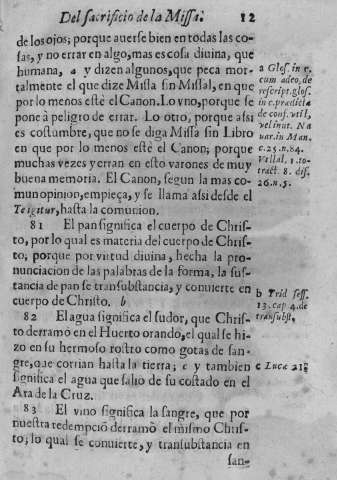 Del sacrificio de la Missa. 12
de los ojos; porque auerse bien en todas las co-
sas, y no errar en algo, mas es cosa diuina, que
humana, a y dizen algunos, que peca mor-
talmente el que dize Missa sin Missal, en que
por lo menos estè el Canon. Lo vno, porque se
pone à peligro de errar. Lo otro, porque assi
es costumbre, que no se diga Missa sin Libro
en que por lo menos estè el Canon; porque
muchas vezes yerran en esto varones de muy
buena memoria. El Canon, segun la mas co-
mun opinion, empieça, y se llama assi desde el
Te igitur, hasta la comunion.
81 El pan significa el cuerpo de Chris-
to, por lo qual es materia del cuerpo de Chris-
to, porque por virtud diuina, hecha la pro-
nunciacion de las palabras de la forma, la sus-
tancia de pan se transubstancia, y conuierte en
cuerpo de Christo. b
82 El agua significa el sudor, que Chris-
to derramò en el Huerto orando, el qual se hi-
zo en su hermoso rostro como gotas de san-
gre, que corrian hasta la tierra; c y tambien
significa el agua que saliò de su costado en el
Ara de la Cruz.
83 El vino significa la sangre, que por
nuestra redempciõ derramò el mismo Chris-
to; lo qual se conuierte, y transubstancia en
san-
a Glos. in c.
cum adeo, de
rescript. glos.
in c. practicia
de cons. vtil,
vel inut. Na
uar. in Man.
c. 25. n. 84.
Villal. 1. to-
tract. 8. dif.
26. n. 5.
b Trid sess.
13. cap. 4. de
transubst.
c Luca 21